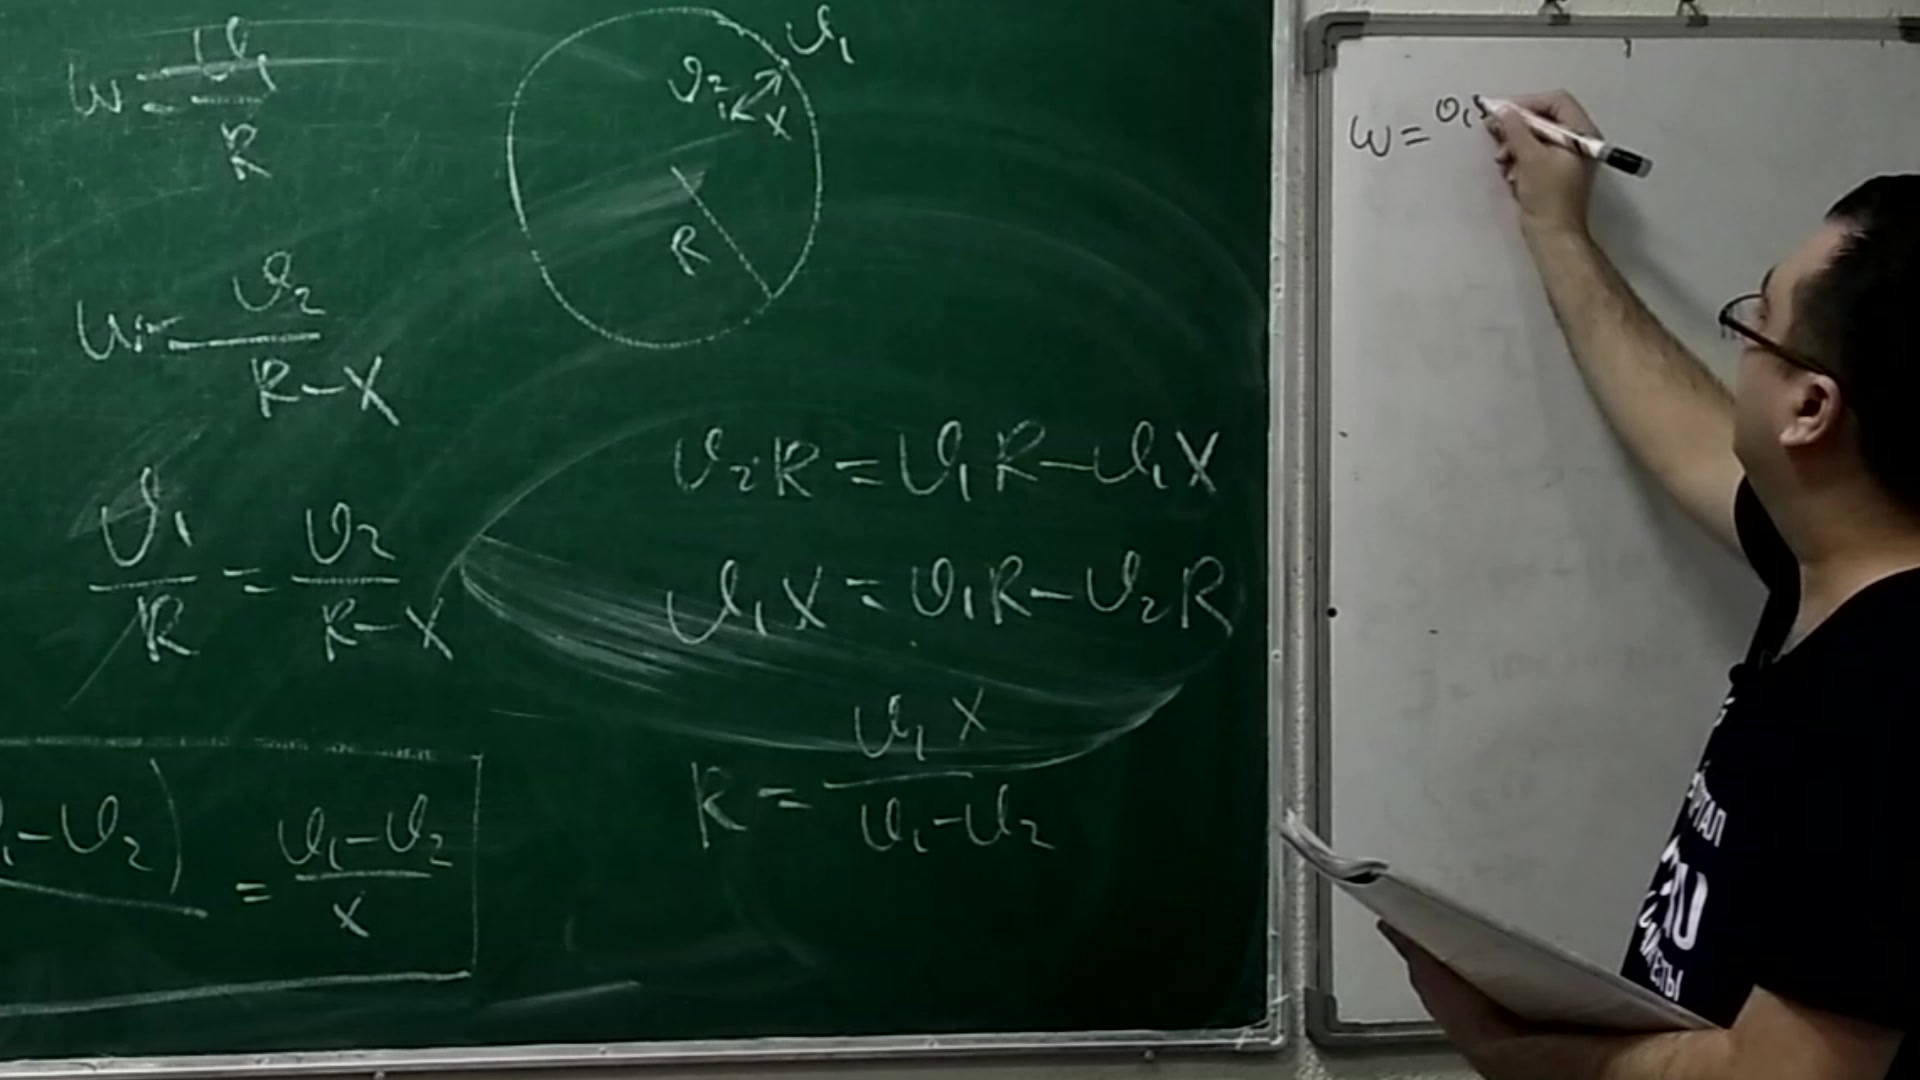 ω = υ₁ / R
υ₁
υ₂
x
R
ω = υ₂ / (R - x)
υ₁ / R = υ₂ / (R - x)
υ₂R = υ₁R - υ₁x
υ₁x = υ₁R - υ₂R
R = υ₁x / (υ₁ - υ₂)
- υ₂) = (υ₁ - υ₂) / x
ω =